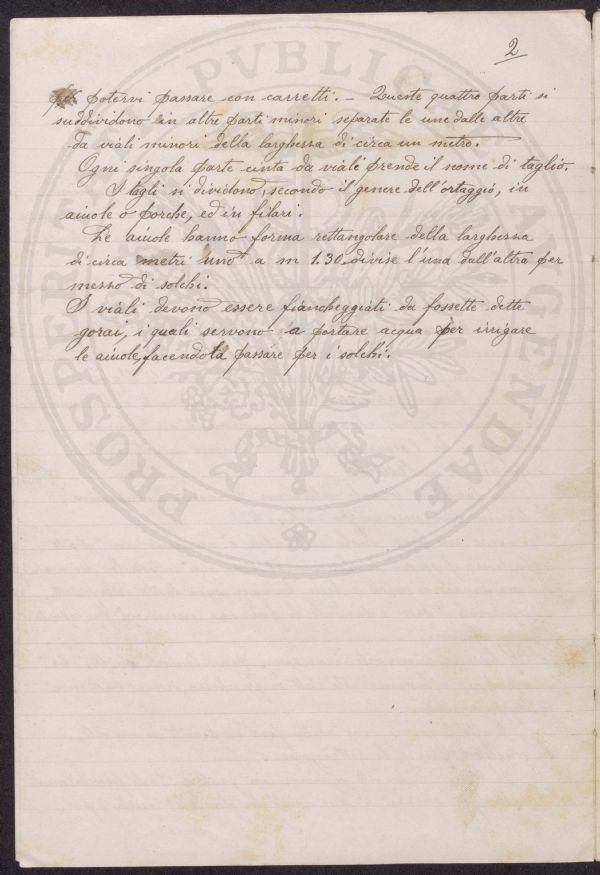 2
per potervi passare con carretti. – Queste quattro parti si
suddividono in altre parti minori separate le une dalle altre
da viali minori della larghessa di circa un metro.
Ogni singola parte cinta da viali prende il nome di taglio.
I tagli si dividono, secondo il genere dell'ortaggio, in
aiuole o porche, ed in filari.
Le aiuole hanno forma rettangolare della larghessa
di circa metri uno a m 1.30 divise l'una dall'altra per
messo di solchi.
I viali devono essere fiancheggiati da fossette dette
gorai, i quali servono a portare acqua per irrigare
le aiuole, facendola passare per i solchi.
PROSPERITATI PVBLICAE AVGENDAE